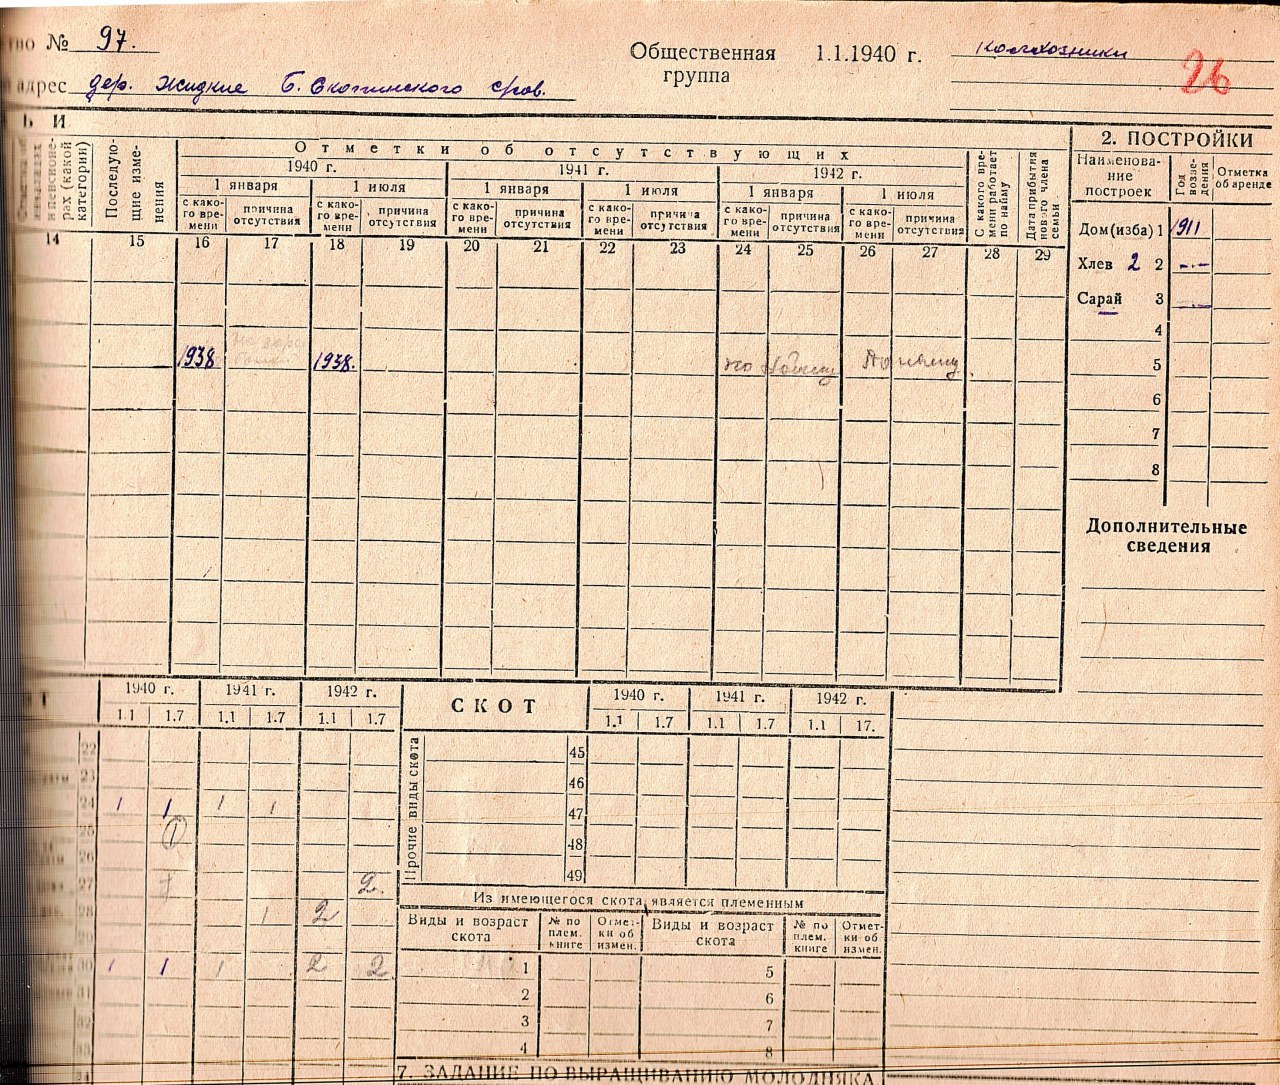 № 97.
Общественная группа 1.1.1940 г. колхозники
26
адрес дер. Жидкие Б. Скопинского с/сов.
Ь И
2. ПОСТРОЙКИ
Отметки об отсутствующих
1940 г. 1941 г. 1942 г.
1 января 1 июля 1 января 1 июля 1 января 1 июля
и пенсионерах (какой категории)
Последующие изменения
с какого времени причина отсутствия с какого времени причина отсутствия с какого времени причина отсутствия с какого времени причина отсутствия с какого времени причина отсутствия с какого времени причина отсутствия
С какого времени работает по найму
Дата прибытия нового члена семьи
Наименование построек Год возведения Отметка об аренде
14 15 16 17 18 19 20 21 22 23 24 25 26 27 28 29
Дом(изба) 1 1911
Хлев 2 2 -·-
Сарай 3 -·-
4
1938 1938. по найму По найму
5
6
7
8
Дополнительные сведения
1940 г. 1941 г. 1942 г.
1.1 1.7 1.1 1.7 1.1 1.7
СКОТ
1940 г. 1941 г. 1942 г.
1.1 1.7 1.1 1.7 1.1 17.
Прочие виды скота
22 45
23 46
24 1 1 1 1 47
25 1 48
26 49
27 2
28 1 2
Из имеющегося скота является племенным
Виды и возраст скота № по плем. книге Отметки об измен. Виды и возраст скота № по плем. книге Отметки об измен.
30 1 1 1 2 2
1 5
31
2 6
32
3 7
33
4 8
7. ЗАДАНИЕ ПО ВЫРАЩИВАНИЮ МОЛОДНЯКА